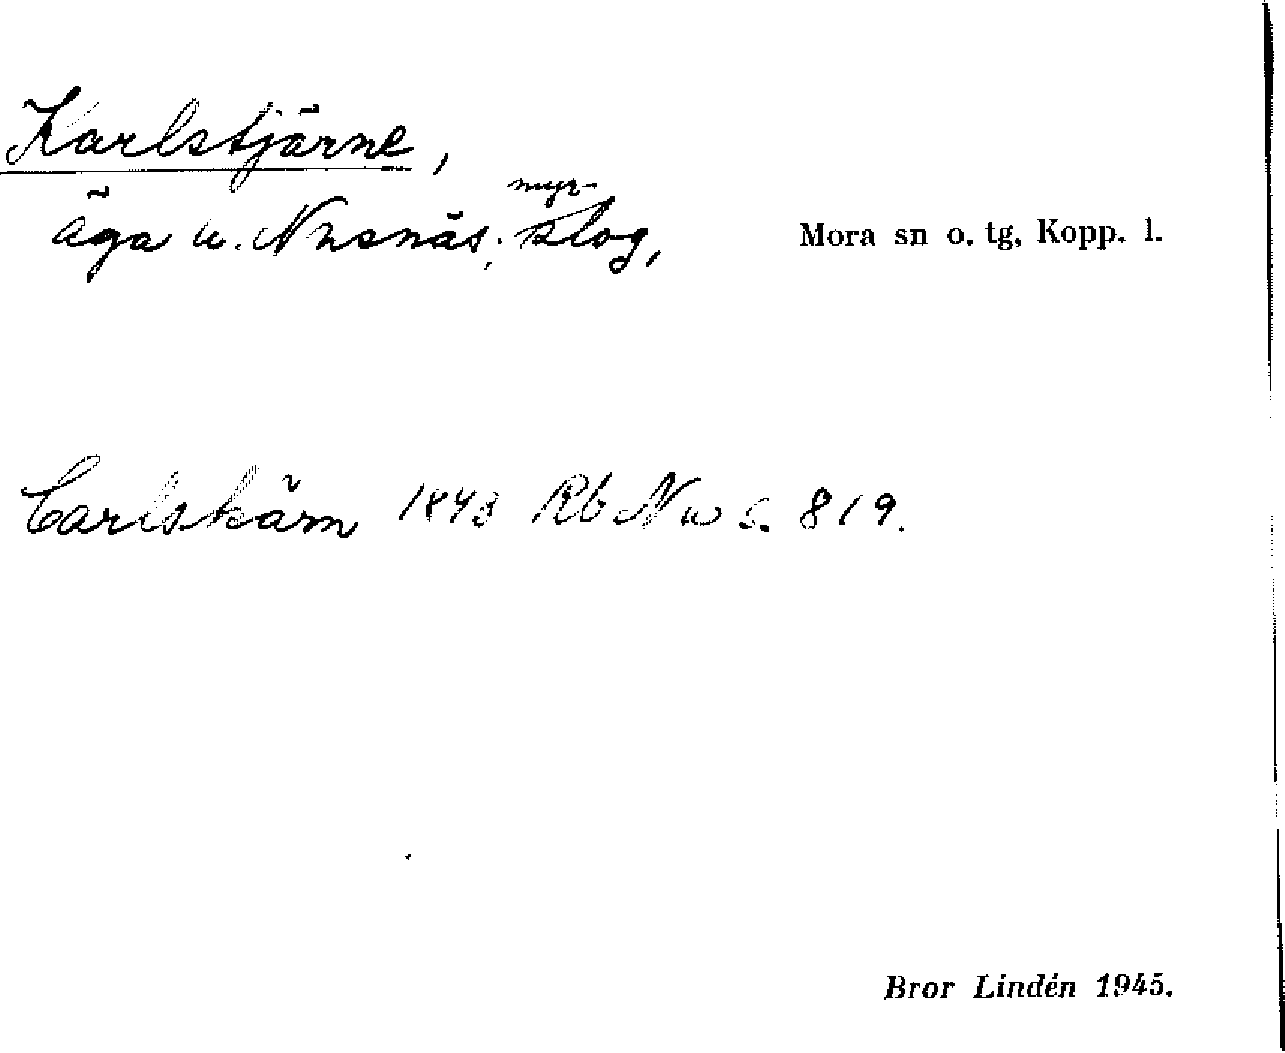 Karlstjärne,
äga u. Nusnäs; myr-slog,
Mora sn o. tg, Kopp. l.
Carlskärn 1843 Rb N w s. 819.
Bror Lindén 1945.